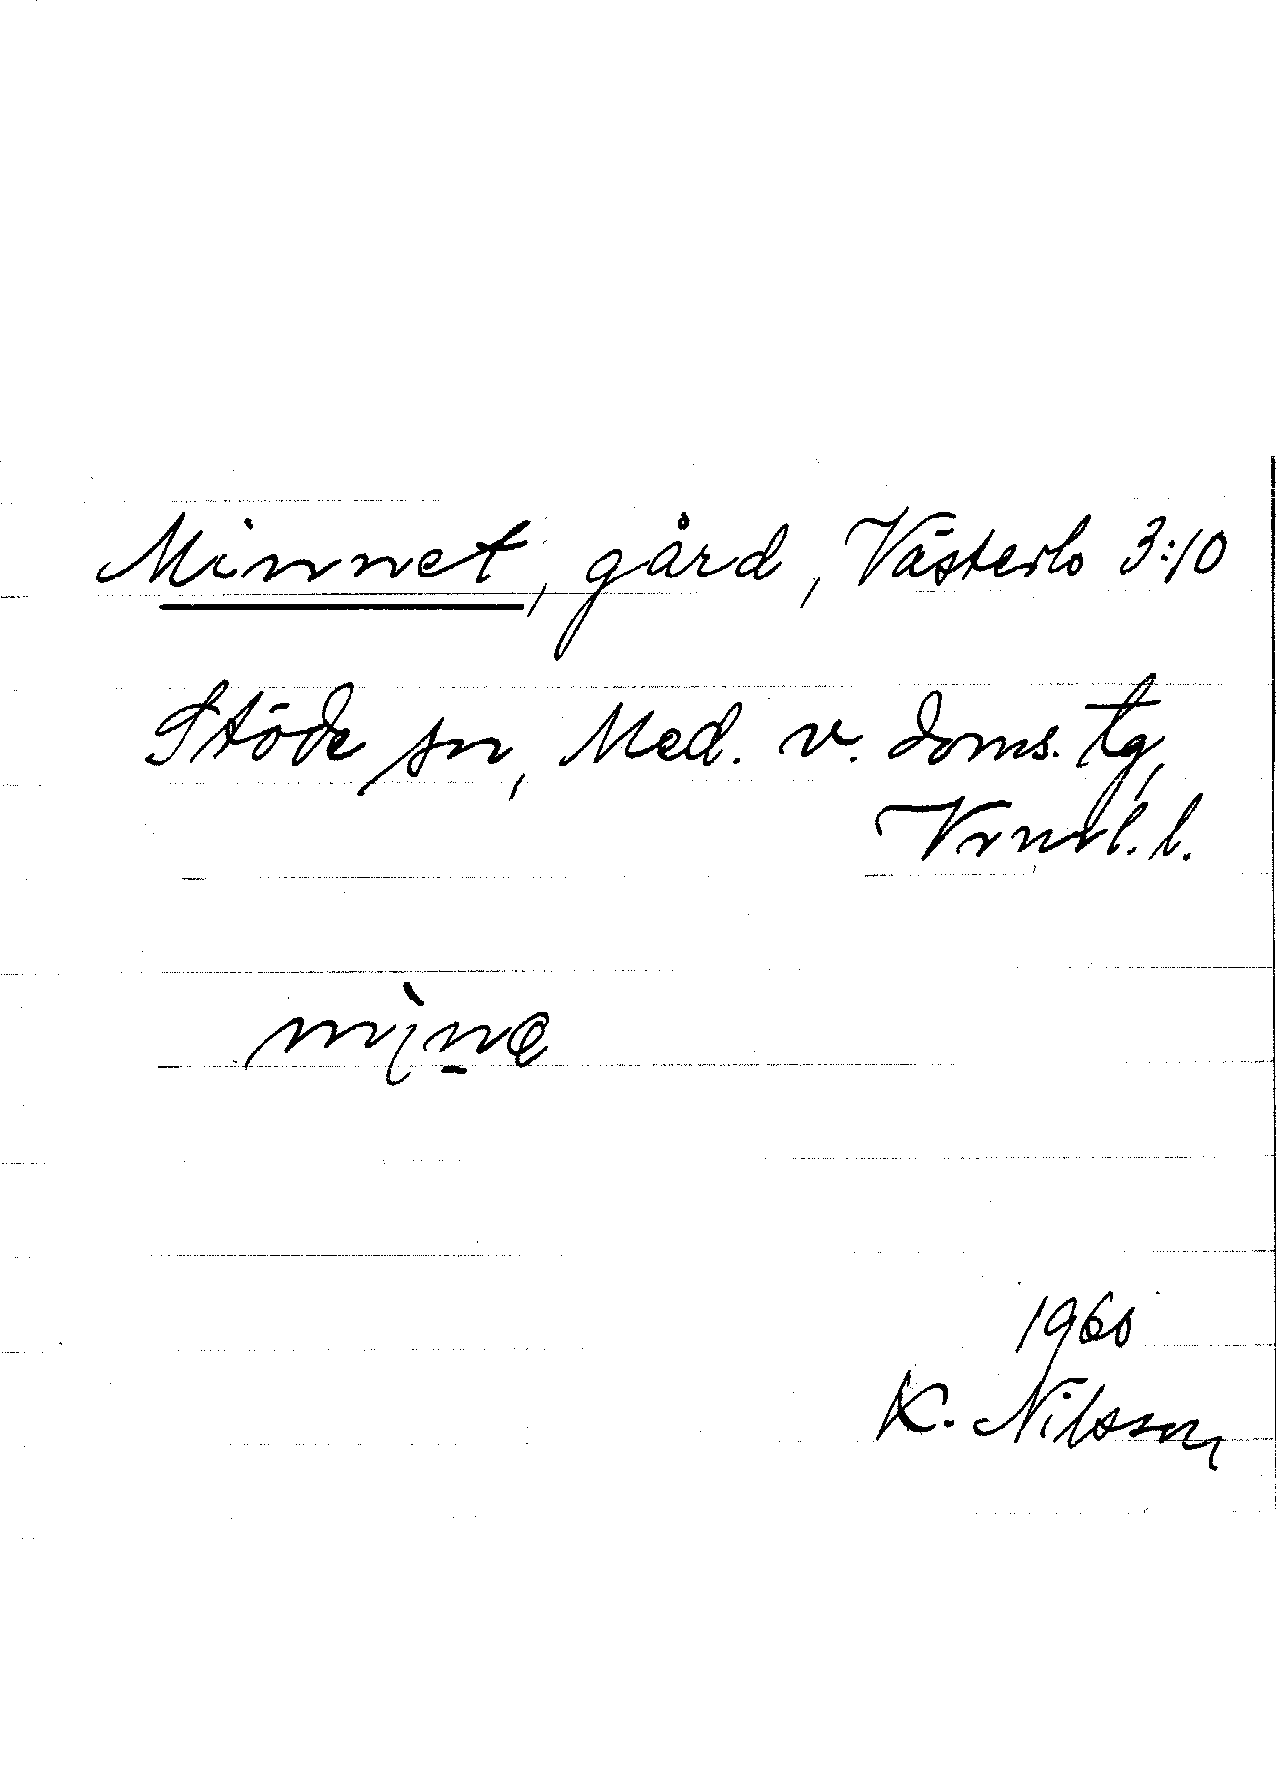 Minnet, gård, Västerlo 3:10
Stöde sn, Med. v. doms. tg,
Vrnrl. l.
1960
K. Nilsson